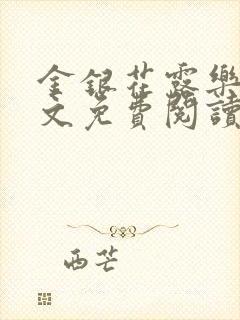 金銀花露樂
文免費閱讀
西芒